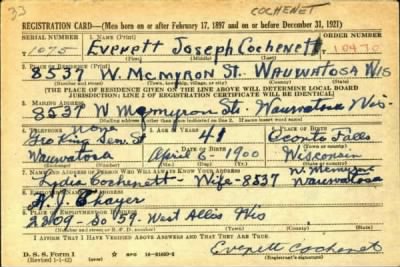 33
COCHENET
REGISTRATION CARD—(Men born on or after February 17, 1897 and on or before December 31, 1921)
SERIAL NUMBER 1. NAME (Print) ORDER NUMBER
1075 Everett Joseph Cochenett 10470
(First) (Middle) (Last)
2. PLACE OF RESIDENCE (Print)
8537 W. McMyron St. Wauwatosa Wis
(Number and street) (Town, township, village, or city) (County) (State)
[THE PLACE OF RESIDENCE GIVEN ON THE LINE ABOVE WILL DETERMINE LOCAL BOARD
JURISDICTION; LINE 2 OF REGISTRATION CERTIFICATE WILL BE IDENTICAL]
3. MAILING ADDRESS
8537 W McMyron St. Wauwatosa Wis.
[Mailing address if other than place indicated on line 2. If same insert word same]
4. TELEPHONE 5. AGE IN YEARS 6. PLACE OF BIRTH
None 41 Oconto Falls
DATE OF BIRTH
Wauwatosa April 6 - 1900 Wisconsin
7. NAME AND ADDRESS OF PERSON WHO WILL ALWAYS KNOW YOUR ADDRESS W. McMyron
Lydia Cochenett - Wife - 8537 Wauwatosa
8. EMPLOYER'S NAME AND ADDRESS
H. J. Thayer
9. PLACE OF EMPLOYMENT OR BUSINESS
2309 - So 59. West Allis Wis
(Number and street or R. F. D. number) (Town) (County) (State)
I AFFIRM THAT I HAVE VERIFIED ABOVE ANSWERS AND THAT THEY ARE TRUE.
D. S. S. Form 1
(Revised 1-1-42) (over)
Everett Cochenet
(Registrant's signature)